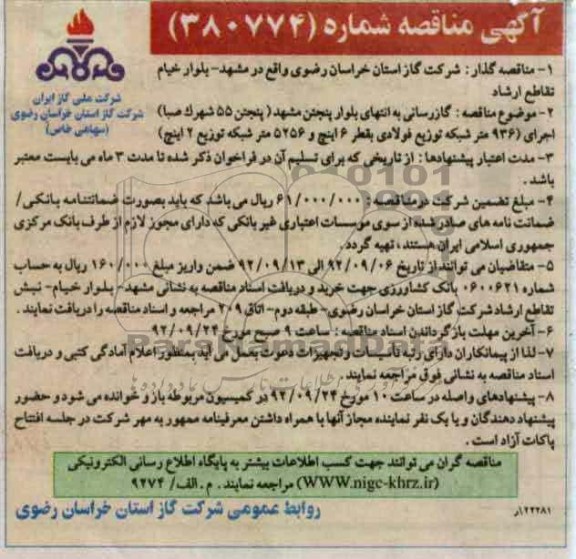 آگهی مناقصه شماره (۳۸۰۷۷۴)
شرکت ملی گاز ایران
شرکت گاز استان خراسان رضوی
(سهامی خاص)
۱- مناقصه گذار : شرکت گاز استان خراسان رضوی واقع در مشهد- بلوار خیام
تقاطع ارشاد
۲- موضوع مناقصه : گازرسانی به انتهای بلوار پنجتن مشهد ( پنجتن ۵۵ شهرک صبا)
اجرای (۹۳۶ متر شبکه توزیع فولادی بقطر ۶ اینچ و ۵۲۵۶ متر شبکه توزیع ۲ اینچ)
۳- مدت اعتبار پیشنهادها : از تاریخی که برای تسلیم آن در فراخوان ذکر شده تا مدت ۳ ماه می بایست معتبر
باشد .
۴- مبلغ تضمین شرکت در مناقصه : ۶۱/۰۰۰/۰۰۰ ریال می باشد که باید بصورت ضمانتنامه بانکی/
ضمانت نامه های صادر شده از سوی موسسات اعتباری غیر بانکی که دارای مجوز لازم از طرف بانک مرکزی
جمهوری اسلامی ایران هستند ، تهیه گردد .
۵- متقاضیان می توانند از تاریخ ۹۲/۰۹/۰۶ الی ۹۲/۰۹/۱۳ ضمن واریز مبلغ ۱۶۰/۰۰۰ ریال به حساب
شماره ۰۶۰۰۶۲۱ بانک کشاورزی جهت خرید و دریافت اسناد مناقصه به نشانی مشهد- بلوار خیام- نبش
تقاطع ارشاد شرکت گاز استان خراسان رضوی- طبقه دوم- اتاق ۲۰۹ مراجعه و اسناد مناقصه را دریافت نمایند .
۶- آخرین مهلت بازگرداندن اسناد مناقصه : ساعت ۹ صبح مورخ ۹۲/۰۹/۲۴
۷- لذا از پیمانکاران دارای رتبه تأسیسات و تجهیزات دعوت بعمل می آید بمنظور اعلام آمادگی کتبی و دریافت
اسناد مناقصه به نشانی فوق مراجعه نمایند .
۸- پیشنهادهای واصله در ساعت ۱۰ مورخ ۹۲/۰۹/۲۴ در کمیسیون مربوطه باز و خوانده می شود و حضور
پیشنهاد دهندگان و یا یک نفر نماینده مجاز آنها با همراه داشتن معرفینامه ممهور به مهر شرکت در جلسه افتتاح
پاکات آزاد است .
مناقصه گران می توانند جهت کسب اطلاعات بیشتر به پایگاه اطلاع رسانی الکترونیکی
(WWW.nigc-khrz.ir) مراجعه نمایند . م . الف/ ۹۲۷۴
روابط عمومی شرکت گاز استان خراسان رضوی
۱۲۲۲۸۱/ر